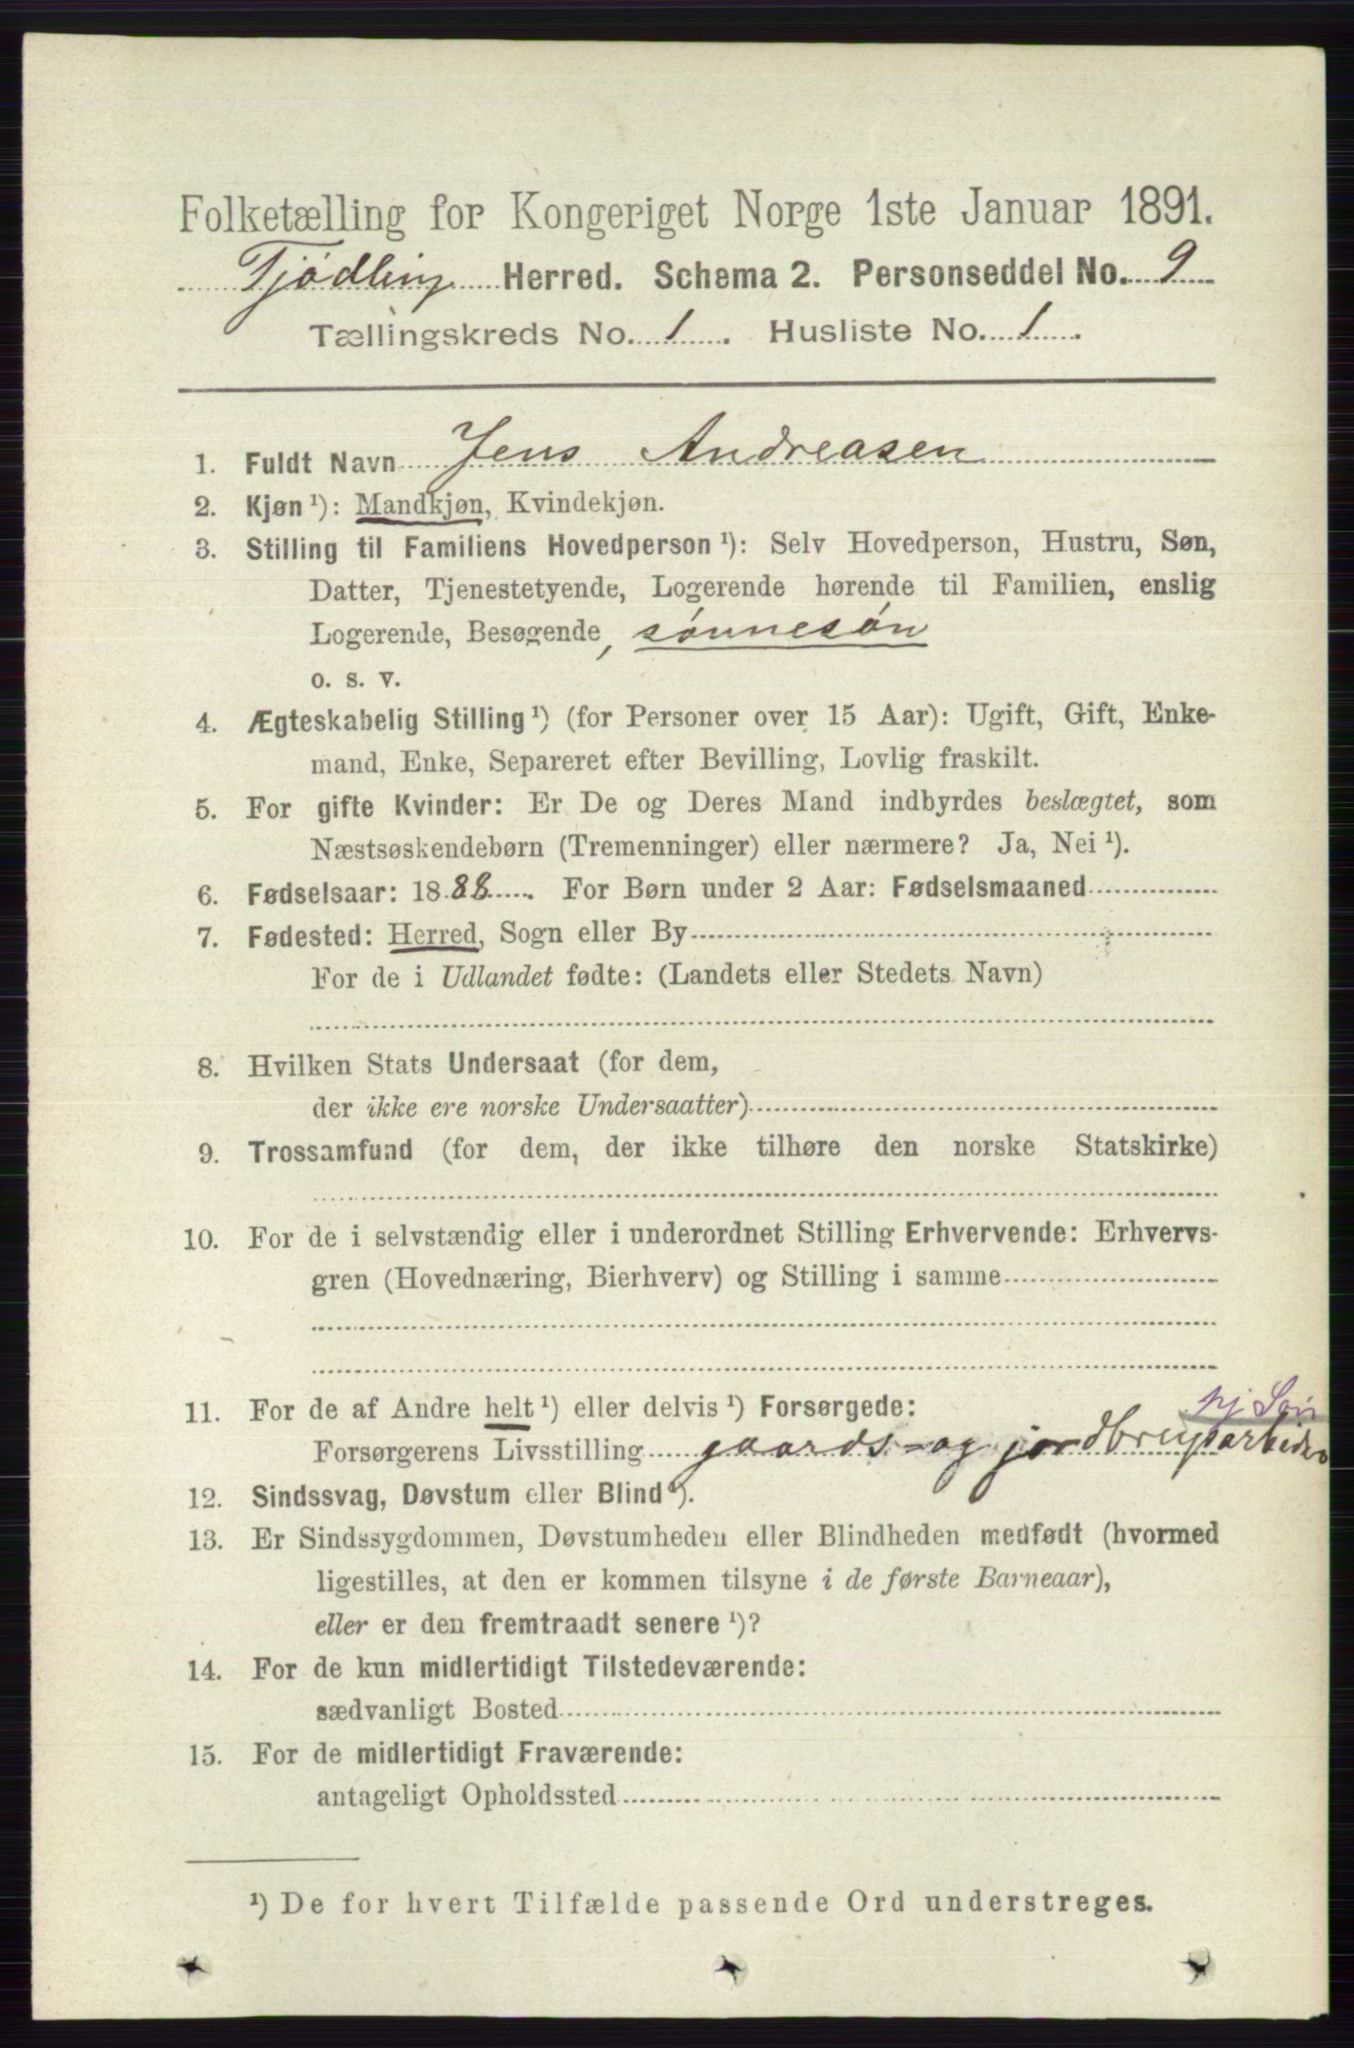 Folketælling for Kongeriget Norge 1ste Januar 1891.
Tjødling Herred. Schema 2. Personseddel No. 9
Tællingskreds No. 1. Husliste No. 1.
1. Fuldt Navn Jens Andreasen
2. Kjøn ¹): Mandkjøn, Kvindekjøn.
3. Stilling til Familiens Hovedperson ¹): Selv Hovedperson, Hustru, Søn,
Datter, Tjenestetyende, Logerende hørende til Familien, enslig
Logerende, Besøgende, sønnesøn
o. s. v.
4. Ægteskabelig Stilling ¹) (for Personer over 15 Aar): Ugift, Gift, Enke-
mand, Enke, Separeret efter Bevilling, Lovlig fraskilt.
5. For gifte Kvinder: Er De og Deres Mand indbyrdes beslægtet, som
Næstsøskendebørn (Tremenninger) eller nærmere? Ja, Nei ¹).
6. Fødselsaar: 1888. For Børn under 2 Aar: Fødselsmaaned
7. Fødested: Herred, Sogn eller By
For de i Udlandet fødte: (Landets eller Stedets Navn)
8. Hvilken Stats Undersaat (for dem,
der ikke ere norske Undersaatter)
9. Trossamfund (for dem, der ikke tilhøre den norske Statskirke)
10. For de i selvstændig eller i underordnet Stilling Erhvervende: Erhvervs-
gren (Hovednæring, Bierhverv) og Stilling i samme
11. For de af Andre helt ¹) eller delvis ¹) Forsørgede:
Søn
Forsørgerens Livsstilling gaards- og jordbrugsarbeider
12. Sindssvag, Døvstum eller Blind ¹).
13. Er Sindssygdommen, Døvstumheden eller Blindheden medfødt (hvormed
ligestilles, at den er kommen tilsyne i de første Barneaar),
eller er den fremtraadt senere ¹)?
14. For de kun midlertidigt Tilstedeværende:
sædvanligt Bosted
15. For de midlertidigt Fraværende:
antageligt Opholdssted
¹) De for hvert Tilfælde passende Ord understreges.